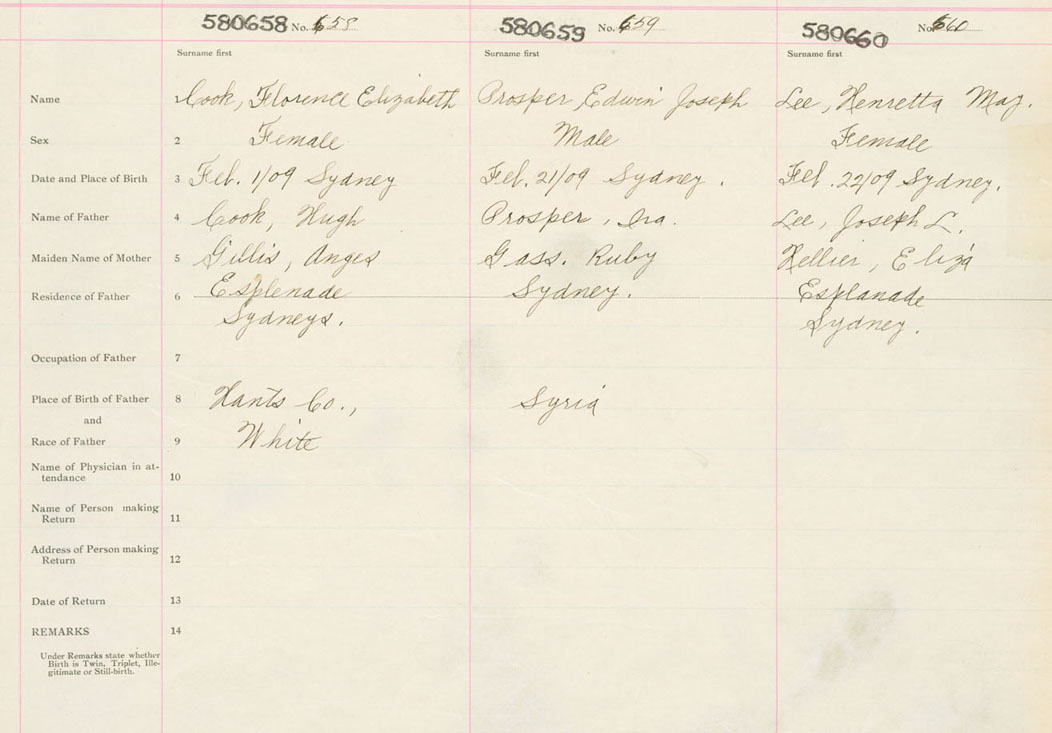 580658 No. 658 580659 No. 659 580660 No. 660
Surname first Surname first Surname first
Name 1 Cook, Florence Elizabeth Prosper, Edwin Joseph Lee, Henretta May.
Sex 2 Female Male Female
Date and Place of Birth 3 Feb. 1/09 Sydney Feb. 21/09 Sydney. Feb. 22/09 Sydney.
Name of Father 4 Cook, Hugh Prosper, Ira. Lee, Joseph L.
Maiden Name of Mother 5 Gillis, Anges Gass. Ruby Hellier, Eliza
Residence of Father 6 Esplenade Sydney. Esplanade
Sydneys. Sydney.
Occupation of Father 7
Place of Birth of Father 8 Hants Co., Syria
and
Race of Father 9 White
Name of Physician in at-
tendance 10
Name of Person making
Return 11
Address of Person making
Return 12
Date of Return 13
REMARKS 14
Under Remarks state whether
Birth is Twin, Triplet, Ille-
gitimate or Still-birth.